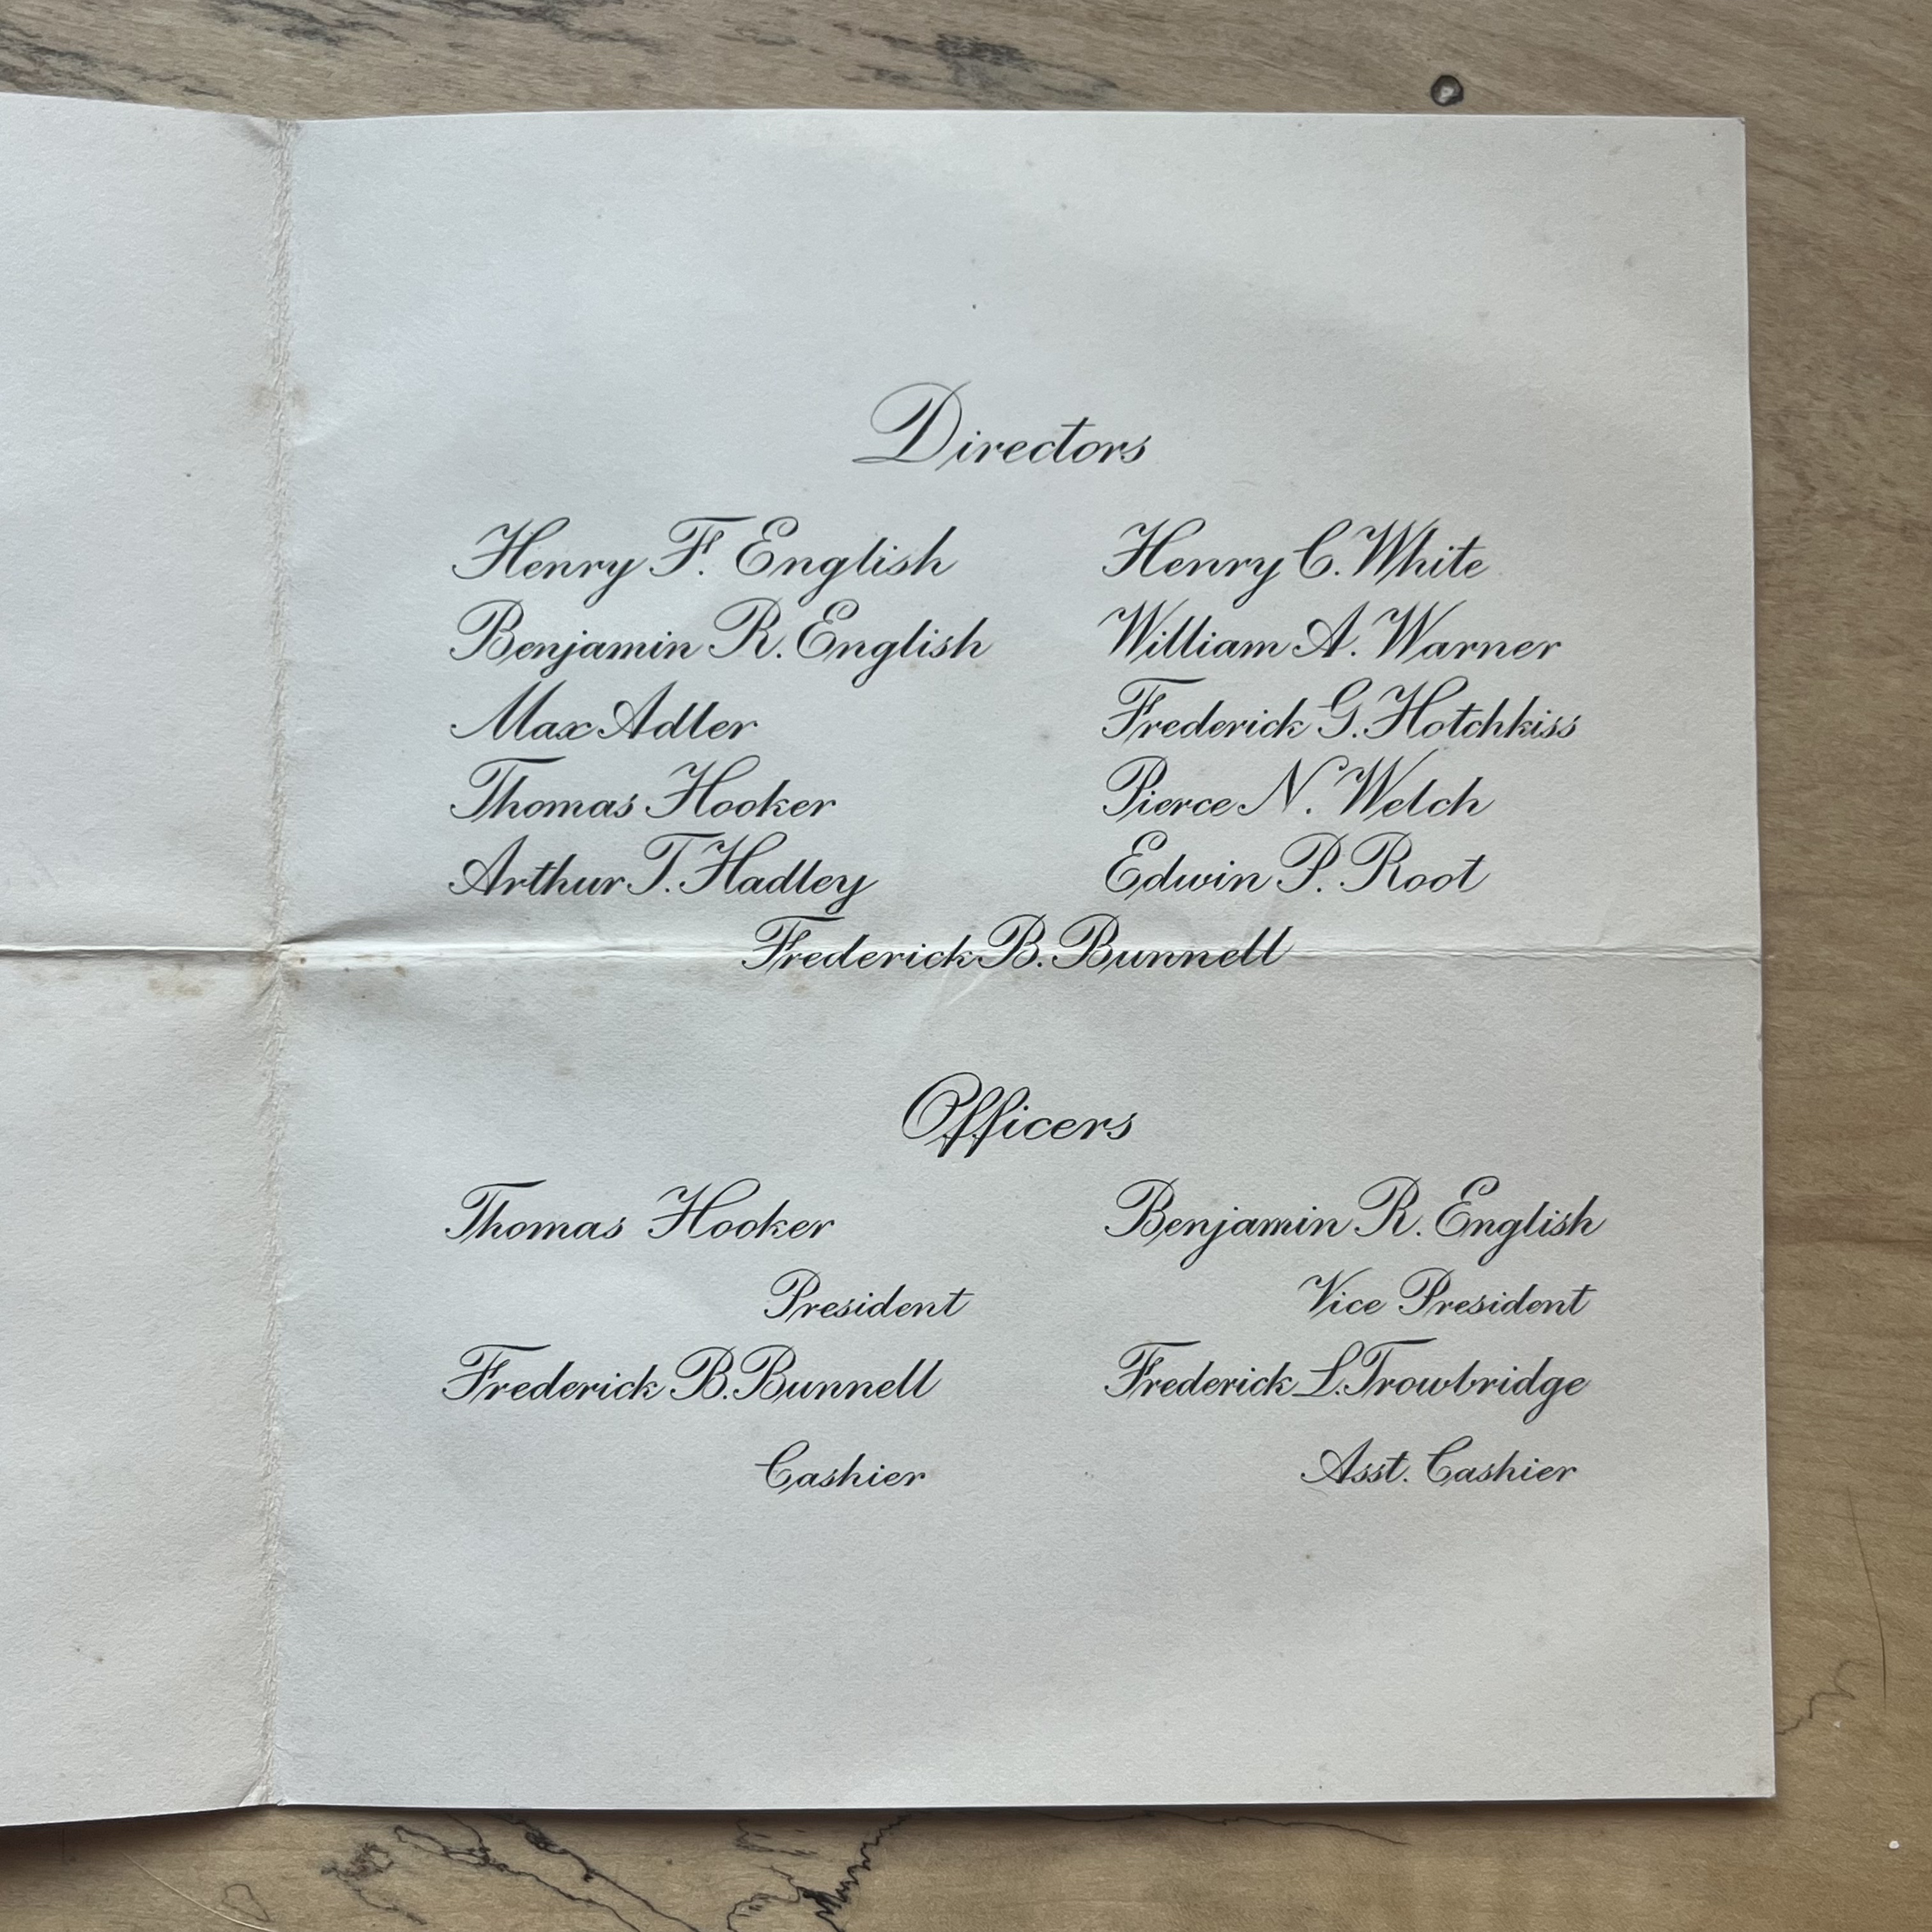 Directors
Henry F. English Henry C. White
Benjamin R. English William A. Warner
Max Adler Frederick G. Hotchkiss
Thomas Hooker Pierce N. Welch
Arthur T. Hadley Edwin P. Root
Frederick B. Bunnell
Officers
Thomas Hooker Benjamin R. English
President Vice President
Frederick B. Bunnell Frederick L. Trowbridge
Cashier Asst. Cashier